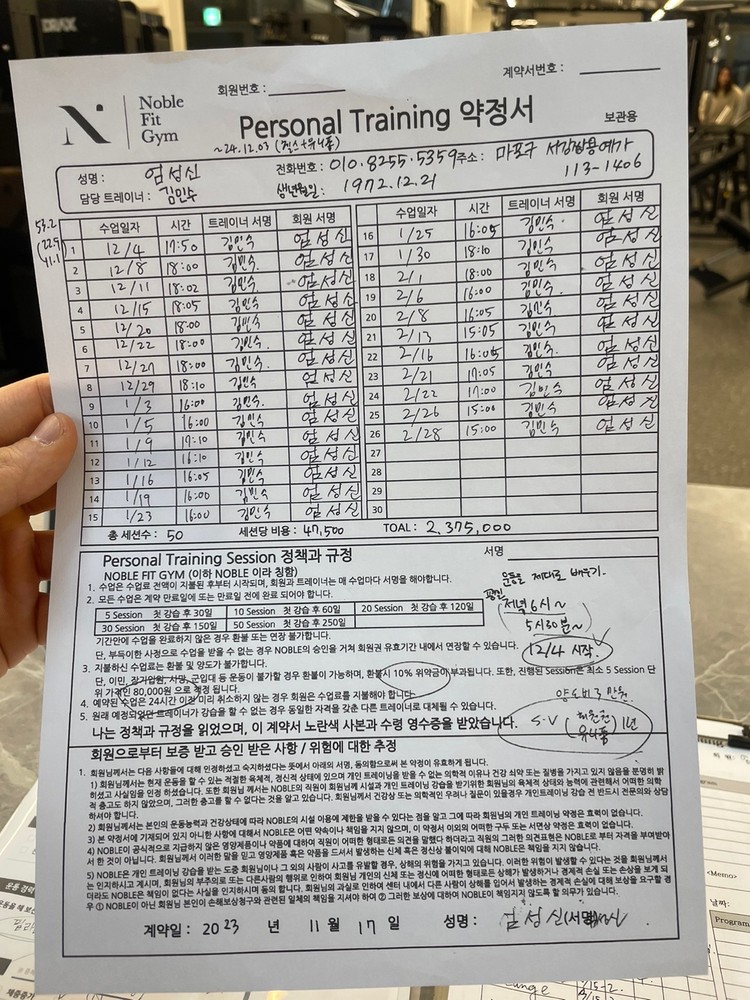 계약서번호 :
회원번호 :
Noble
Fit
Gym
Personal Training 약정서
보관용
~24.12.03 (헬스+유니폼)
성명 : 엄성신
전화번호 : 010.8255.5359 주소 : 마포구 서강쌍용예가
113-1406
담당 트레이너 : 김민수
생년월일 : 1972.12.21
53.2
22.9
41.1
수업일자 시간 트레이너 서명 회원 서명
1 12/4 17:50 김민수 엄성신
2 12/8 18:00 김민수 엄성신
3 12/11 18:02 김민수 엄성신
4 12/15 18:05 김민수 엄성신
5 12/20 18:00 김민수 엄성신
6 12/22 18:00 김민수 엄성신
7 12/27 18:00 김민수 엄성신
8 12/29 18:10 김민수 엄성신
9 1/3 16:00 김민수 엄성신
10 1/5 16:00 김민수 엄성신
11 1/9 17:10 김민수 엄성신
12 1/12 16:10 김민수 엄성신
13 1/16 16:05 김민수 엄성신
14 1/19 16:00 김민수 엄성신
15 1/23 16:00 김민수 엄성신
수업일자 시간 트레이너 서명 회원 서명
16 1/25 16:05 김민수 엄성신
17 1/30 18:10 김민수 엄성신
18 2/1 18:00 김민수 엄성신
19 2/6 16:00 김민수 엄성신
20 2/8 16:05 김민수 엄성신
21 2/13 15:05 김민수 엄성신
22 2/16 16:05 김민수 엄성신
23 2/21 17:05 김민수 엄성신
24 2/22 17:00 김민수 엄성신
25 2/26 15:00 김민수 엄성신
26 2/28 15:00 김민수 엄성신
27
28
29
30
총 세션수 : 50 세션당 비용 : 47,500 TOAL : 2,375,000
Personal Training Session 정책과 규정
서명
NOBLE FIT GYM (이하 NOBLE 이라 칭함)
1. 수업은 수업료 전액이 지불된 후부터 시작되며, 회원과 트레이너는 매 수업마다 서명을 해야합니다.
2. 모든 수업은 계약 만료일에 또는 만료일 전에 완료 되어야 합니다.
5 Session 첫 강습 후 30일 10 Session 첫 강습 후 60일 20 Session 첫 강습 후 120일
30 Session 첫 강습 후 150일 50 Session 첫 강습 후 250일
기간안에 수업을 완료하지 않은 경우 환불 또는 연장 불가합니다.
단, 부득이한 사정으로 수업을 받을 수 없는 경우 NOBLE의 승인을 거쳐 회원권 유효기간 내에서 연장할 수 있습니다.
3. 지불하신 수업료는 환불 및 양도가 불가합니다.
단, 이민, 장기입원, 사망, 군입대 등 운동이 불가할 경우 환불이 가능하며, 환불시 10% 위약금이 부과됩니다. 또한, 진행된 Session은 최소 5 Session 단
위 가격인 80,000원 으로 책정 됩니다.
4. 예약된 수업은 24시간 이전 미리 취소하지 않는 경우 회원은 수업료를 지불해야 합니다.
5. 원래 예정되었던 트레이너가 강습을 할 수 없는 경우 동일한 자격을 갖춘 다른 트레이너로 대체될 수 있습니다.
운동을 제대로 배우기.
평일
저녁 6시~
5시30분~
12/4 시작.
양도비 3만원
S.V (회원권 유니폼) 1년
나는 정책과 규정을 읽었으며, 이 계약서 노란색 사본과 수령 영수증을 받았습니다.
회원으로부터 보증 받고 승인 받은 사항 / 위험에 대한 추정
1. 회원님께서는 다음 사항들에 대해 인정하셨고 숙지하셨다는 뜻에서 아래의 서명, 동의함으로써 본 약정이 유효하게 됩니다.
1) 회원님께서는 현재 운동을 할 수 있는 적절한 육체적, 정신적 상태에 있으며 개인 트레이닝을 받을 수 없는 의학적 이유나 건강 쇠약 또는 질병을 가지고 있지 않음을 분명히 밝
히셨고 사실임을 인정 하셨습니다. 또한 회원님 께서는 NOBLE의 직원이 회원님께 시설과 개인 트레이닝 강습을 받기위한 회원님의 육체적 상태와 능력에 관련해서 어떠한 의학
적 충고도 하지 않았으며, 그러한 충고를 할 수 없다는 것을 알고 있습니다. 회원님께서 건강상 또는 의학적인 우려나 질문이 있을경우 개인트레이닝 강습 전 반드시 전문의와 상담
하셔야 합니다.
2) 회원님께서는 본인의 운동능력과 건강상태에 따라 NOBLE의 시설 이용에 제한을 받을 수 있다는 점을 알고 그에 따라 회원님의 개인 트레이닝 강습을 받습니다.
3) 본 약정서에 기재되어 있지 아니한 사항에 대해서 NOBLE은 어떤 약속이나 책임을 지지 않으며, 이 약정서 이외의 어떠한 구두 또는 서면상 약정은 효력이 없습니다.
4) NOBLE이 공식적으로 지급하지 않은 영양제품이나 약품에 대하여 직원이 어떠한 형태로든 의견을 말했다 하더라고 직원의 그러한 의견표현은 NOBLE로 부터 자격을 부여받아
서 한 것이 아닙니다. 회원님께서 이러한 말을 믿고 영양제품 혹은 약품을 드셔서 발생하는 신체 혹은 정신상 불이익에 대해 NOBLE은 책임을 지지 않습니다.
5) NOBLE은 개인 트레이닝 강습을 받는 도중 회원님이나 그 외의 사람이 사고를 유발할 경우, 상해의 위험을 가지고 있습니다. 이러한 위험이 발생할 수 있다는 것을 회원님께서
는 인지하시고 계시며, 회원님의 부주의 또는 다른사람의 행위로 인하여 회원님 개인의 신체 또는 정신에 어떠한 형태로든 상해가 발생하거나 경제적 손실 또는 손상을 보게 되
더라도 NOBLE은 책임이 없다는 사실을 인지하시며 동의 합니다. 회원님의 과실로 인하여 센터 내에서 다른 사람이 상해를 입어서 발생하는 경제적 손실에 대해 보상을 요구할 경
우 ① NOBLE이 아닌 회원님 본인이 손해보상청구와 관련된 일체의 책임을 지셔야 하며 ② 그러한 보상에 대하여 NOBLE이 책임지지 않도록 할 의무가 있습니다.
계약일 : 2023 년 11월 17일 성명 : 엄성신 (서명)
<Memo>
날짜:
Program